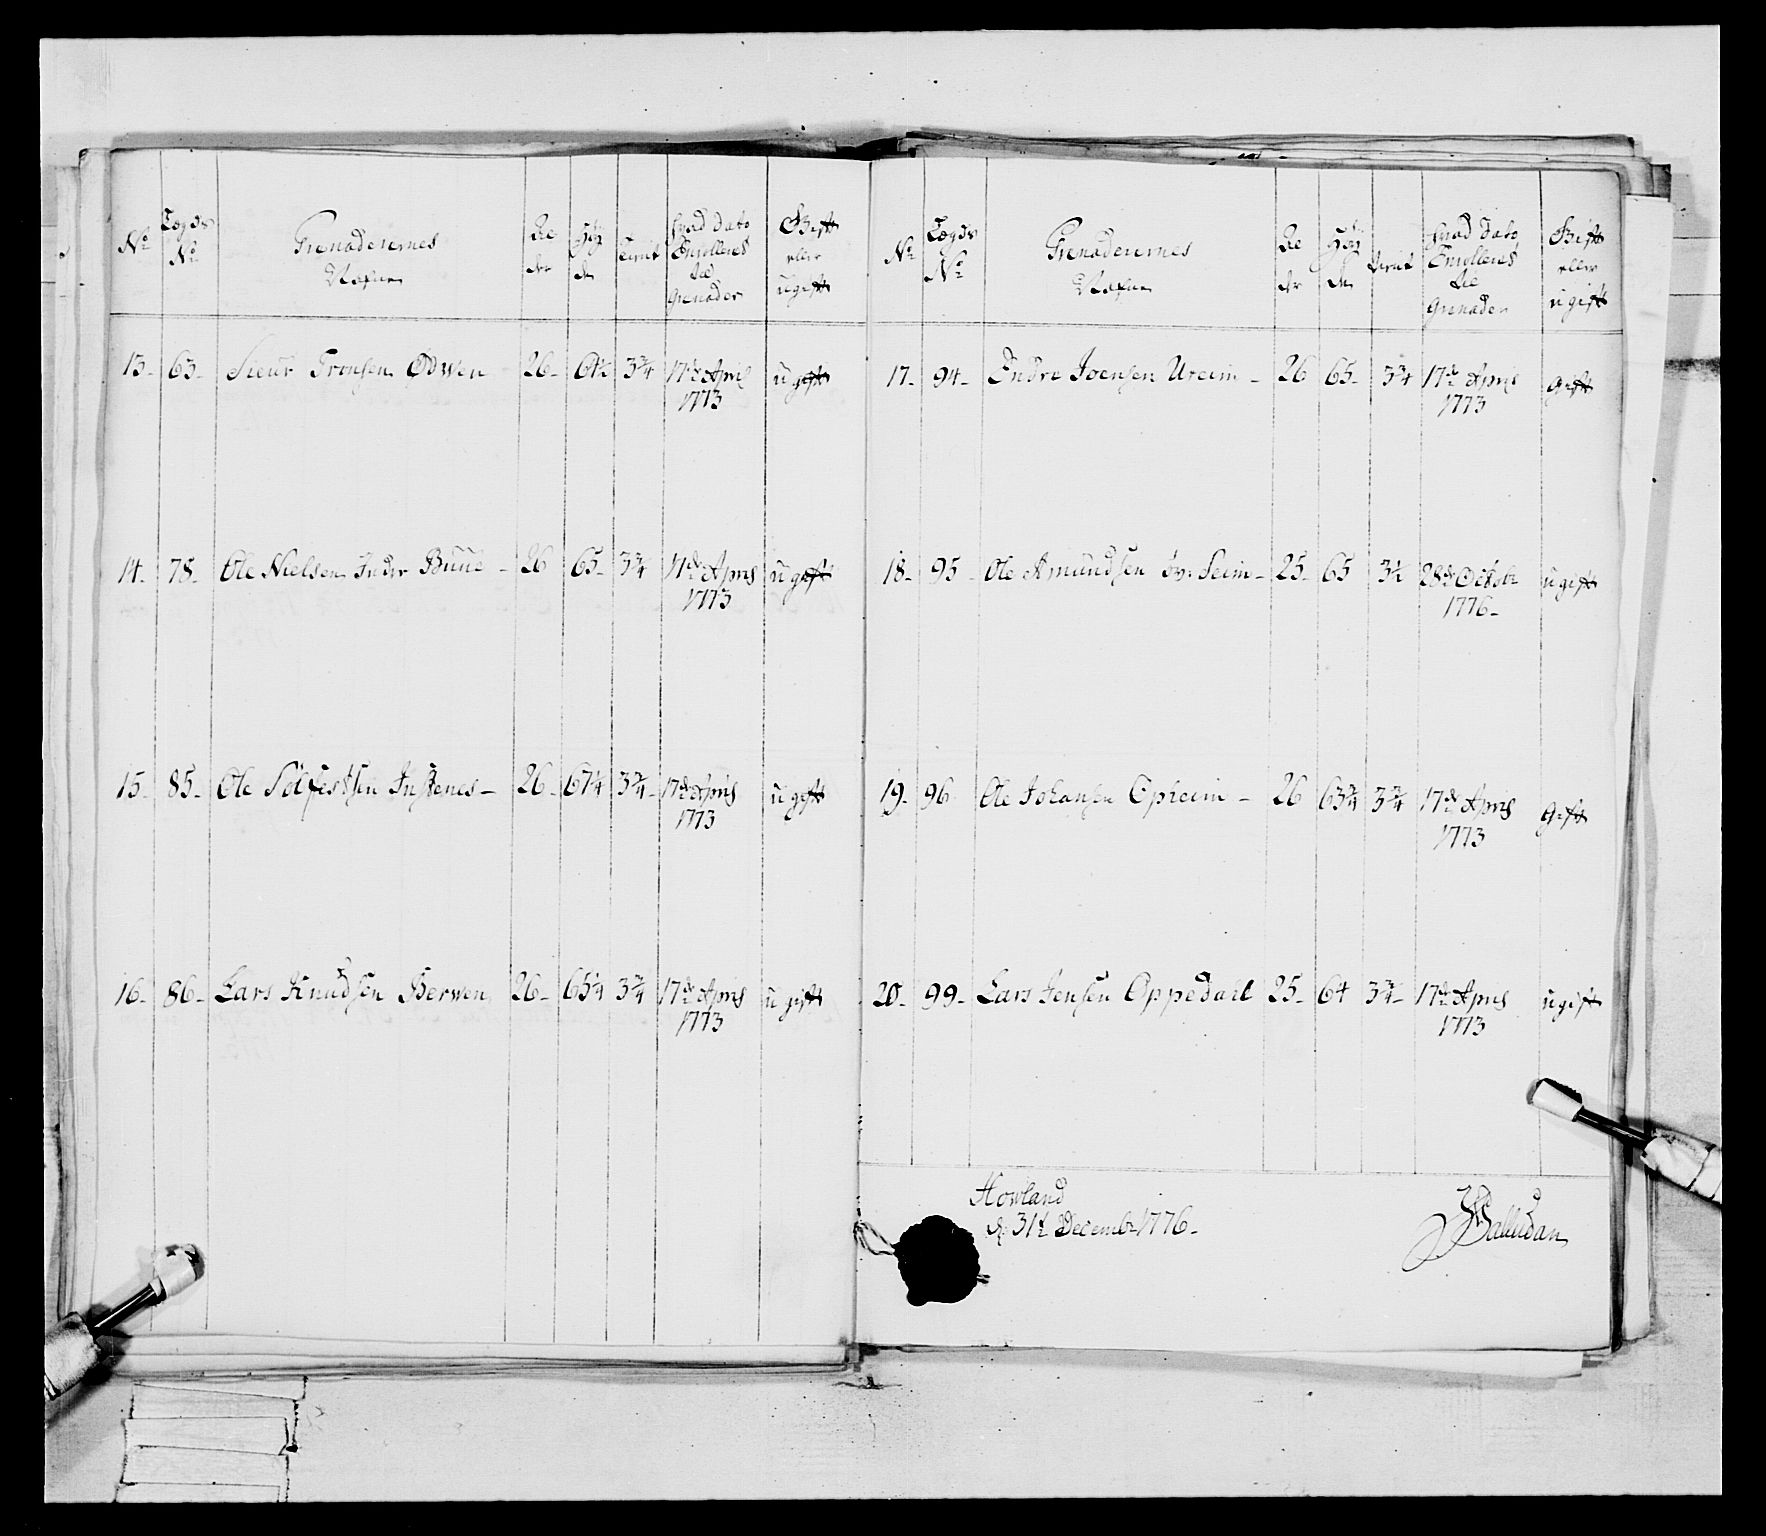 No
Lægds No
Grenaderernes Nafne
Al der
Høy de
Tient
hvad Dato Enrolleret til Grenader
Gift eller ugift
13- 63- Siur Tronsen Ødven 26- 64½ 3¾ 17de April 1773 ugift
14- 78- Ole Nielsen Indr Buue - 26 65- 3¾ 17de April 1773 ugift
15- 85- Ole Sølfestsen Instenes - 26- 67¼ 3¾- 17de April 1773 ugift
16- 86- Lars Knudsen Berven 26- 65¼ 3¾ 17de April 1773 ugift
No
Lægds No
Grenaderernes Nafne
Al der
Høy de
Tient
hvad Dato Enrolleret til Grenader
Gift eller ugift
17- 94- Endre Joensen Ureim - 26 65- 3¾ 17de April 1773 gift
18- 95- Ole Amundsen øv: Seim - 25- 65 3½ 28de Octobr 1776- ugift
19- 96 Ole Johansen Opleim - 26 63¾ 3¾ 17de April 1773 gift
20- 99- Lars Jensen Oppedahl 25- 64 3¾- 17de April 1773 ugift
Howland
d: 31te Decembr 1776-
Palludan